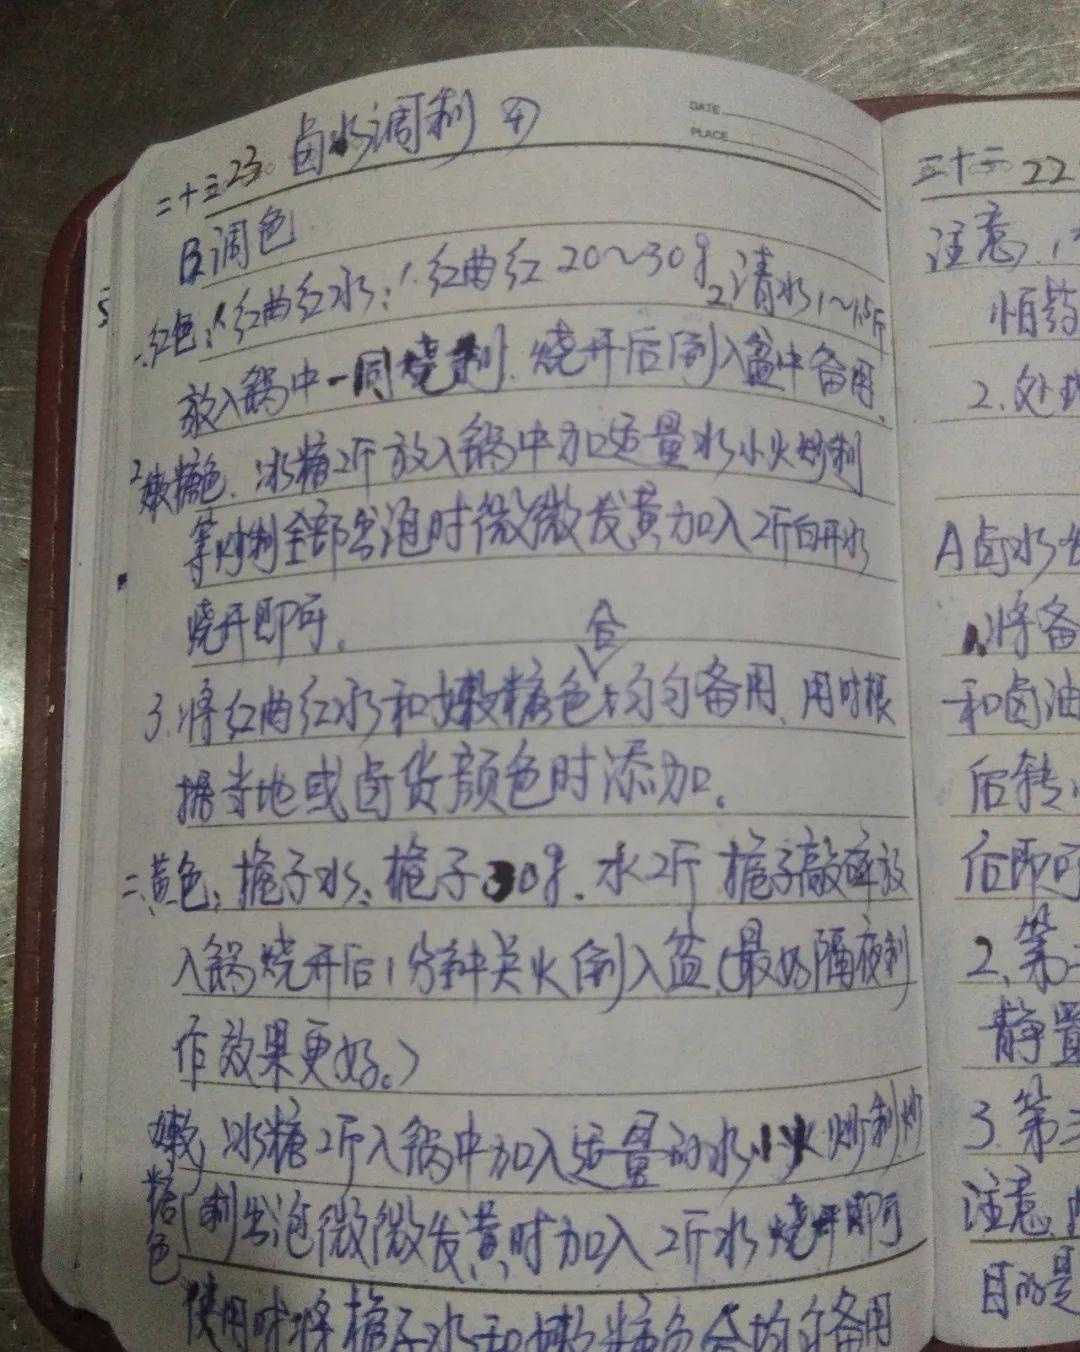 二十三.23. 卤水调制 ④
DATE
PLACE
B调色
一.红色：1.红曲红水：1.红曲红20～30g 2.清水1～1.5斤
放入锅中一同烧制.烧开后倒入盆中备用.
2嫩糖色.冰糖2斤放入锅中加适量水小火炒制
等炒制全部出泡时微微发黄加入2斤白开水
烧开即可.
3.将红曲红水和嫩糖色合均匀备用、用时根
据当地或卤货颜色时添加。
二.黄色：栀子水：栀子30g.水2斤栀子敲碎放
入锅烧开后1分钟关火倒入盆.(最好隔夜制
作效果更好。)
嫩糖色 冰糖2斤入锅中加入适量的水小火炒制炒
制出泡微微发黄时加入2斤水烧开即可
使用时将栀子水和嫩糖色合均匀备用
三十三 22
注意.
怕药
2.处理
A卤水
1.将备
和卤油
后转
后即可
2.第二
静置
3.第三
注意.
目的是